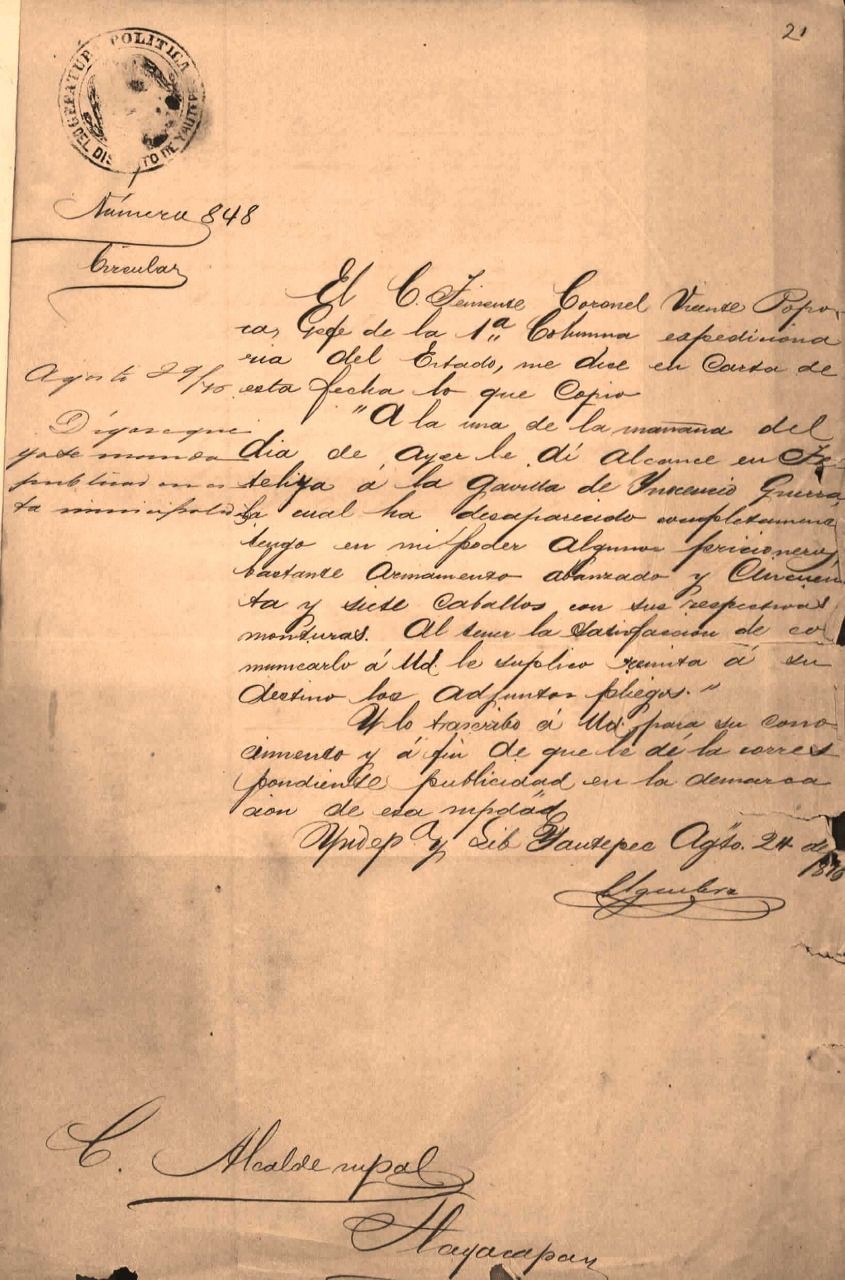 21
GEFATURA POLITICA
DEL DISTRITO DE YAUTEPEC
Número 848
Circular
El C. Teniente Coronel Vicente Popo-
ca, Gefe de la 1ª Columna expediciona
ria del Estado, me dice en Carta de
esta fecha lo que Copio
"A la una de la mañana del
dia de ayer le dí alcance en
á la Gavilla de Inocencio Guerra
la cual ha desaparecido completamen
tengo en mi poder algunos pricioneros
bastante Armamento abanzado y Cincuen
ta y siete caballos con sus respectivas
monturas. Al tener la satisfaccion de co
municarlo á Ud. le suplico remita á su
destino los adjuntos pliegos."
Y lo trascribo á Ud. para su cono
cimiento y á fin de que le dé la corres
pondiente publicidad en la demarca
cion de esa mpdad
Yndep y Lib Yautepec Agto. 24 de
1876
Agosto 29/76
Digase que
ya se manda
publicar en es
ta municipalid
C. Alcalde mpal
Tlayacapan